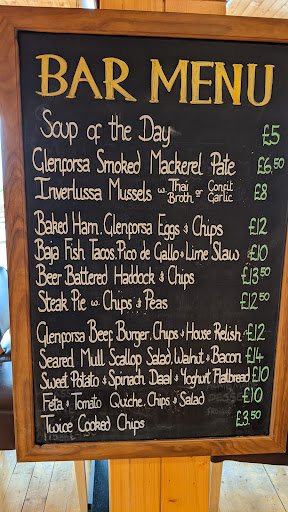 BAR MENU
Soup of the Day £5
Glenforsa Smoked Mackerel Pate £6.50
Inverlussa Mussels w. Thai Broth or Confit Garlic £8
Baked Ham, Glenforsa Eggs & Chips £12
Baja Fish Tacos, Pico de Gallo & Lime Slaw £10
Beer Battered Haddock & Chips £13.50
Steak Pie w Chips & Peas £12.50
Glenforsa Beef Burger, Chips & House Relish £12
Seared Mull Scallop Salad, Walnut & Bacon £14
Sweet Potato & Spinach Daal & Yoghurt Flatbread £10
Feta & Tomato Quiche, Chips & Salad £10
Twice Cooked Chips £3.50